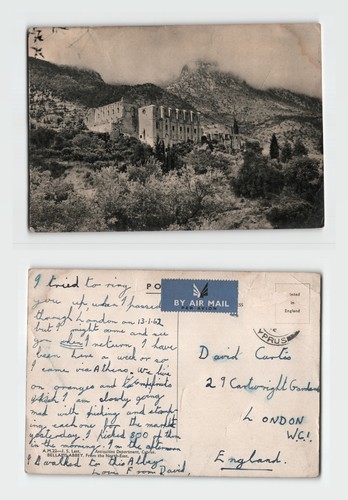 I tried to ring
you up when I passed
though London on 13-1-62
but I might come and see
you when I return. I have
been here a week or so
I came via Athens. We live
on oranges and
which I am slowly going
mad with picking and stamp-
ing each one for the market
yesterday I picked 800 of them
in the morning. In the afternoon
I walked to this Abbey.
Love from David.
A.M.22—J. S. Last. Antiquities Department, Cyprus.
BELLAPAIS ABBEY, From the North-East.
PO
BY AIR MAIL
PAR AVION
Printed
in
England
CYPRUS
David Curtis
29 Cartwright Gardens
LONDON
W.C.1.
England.